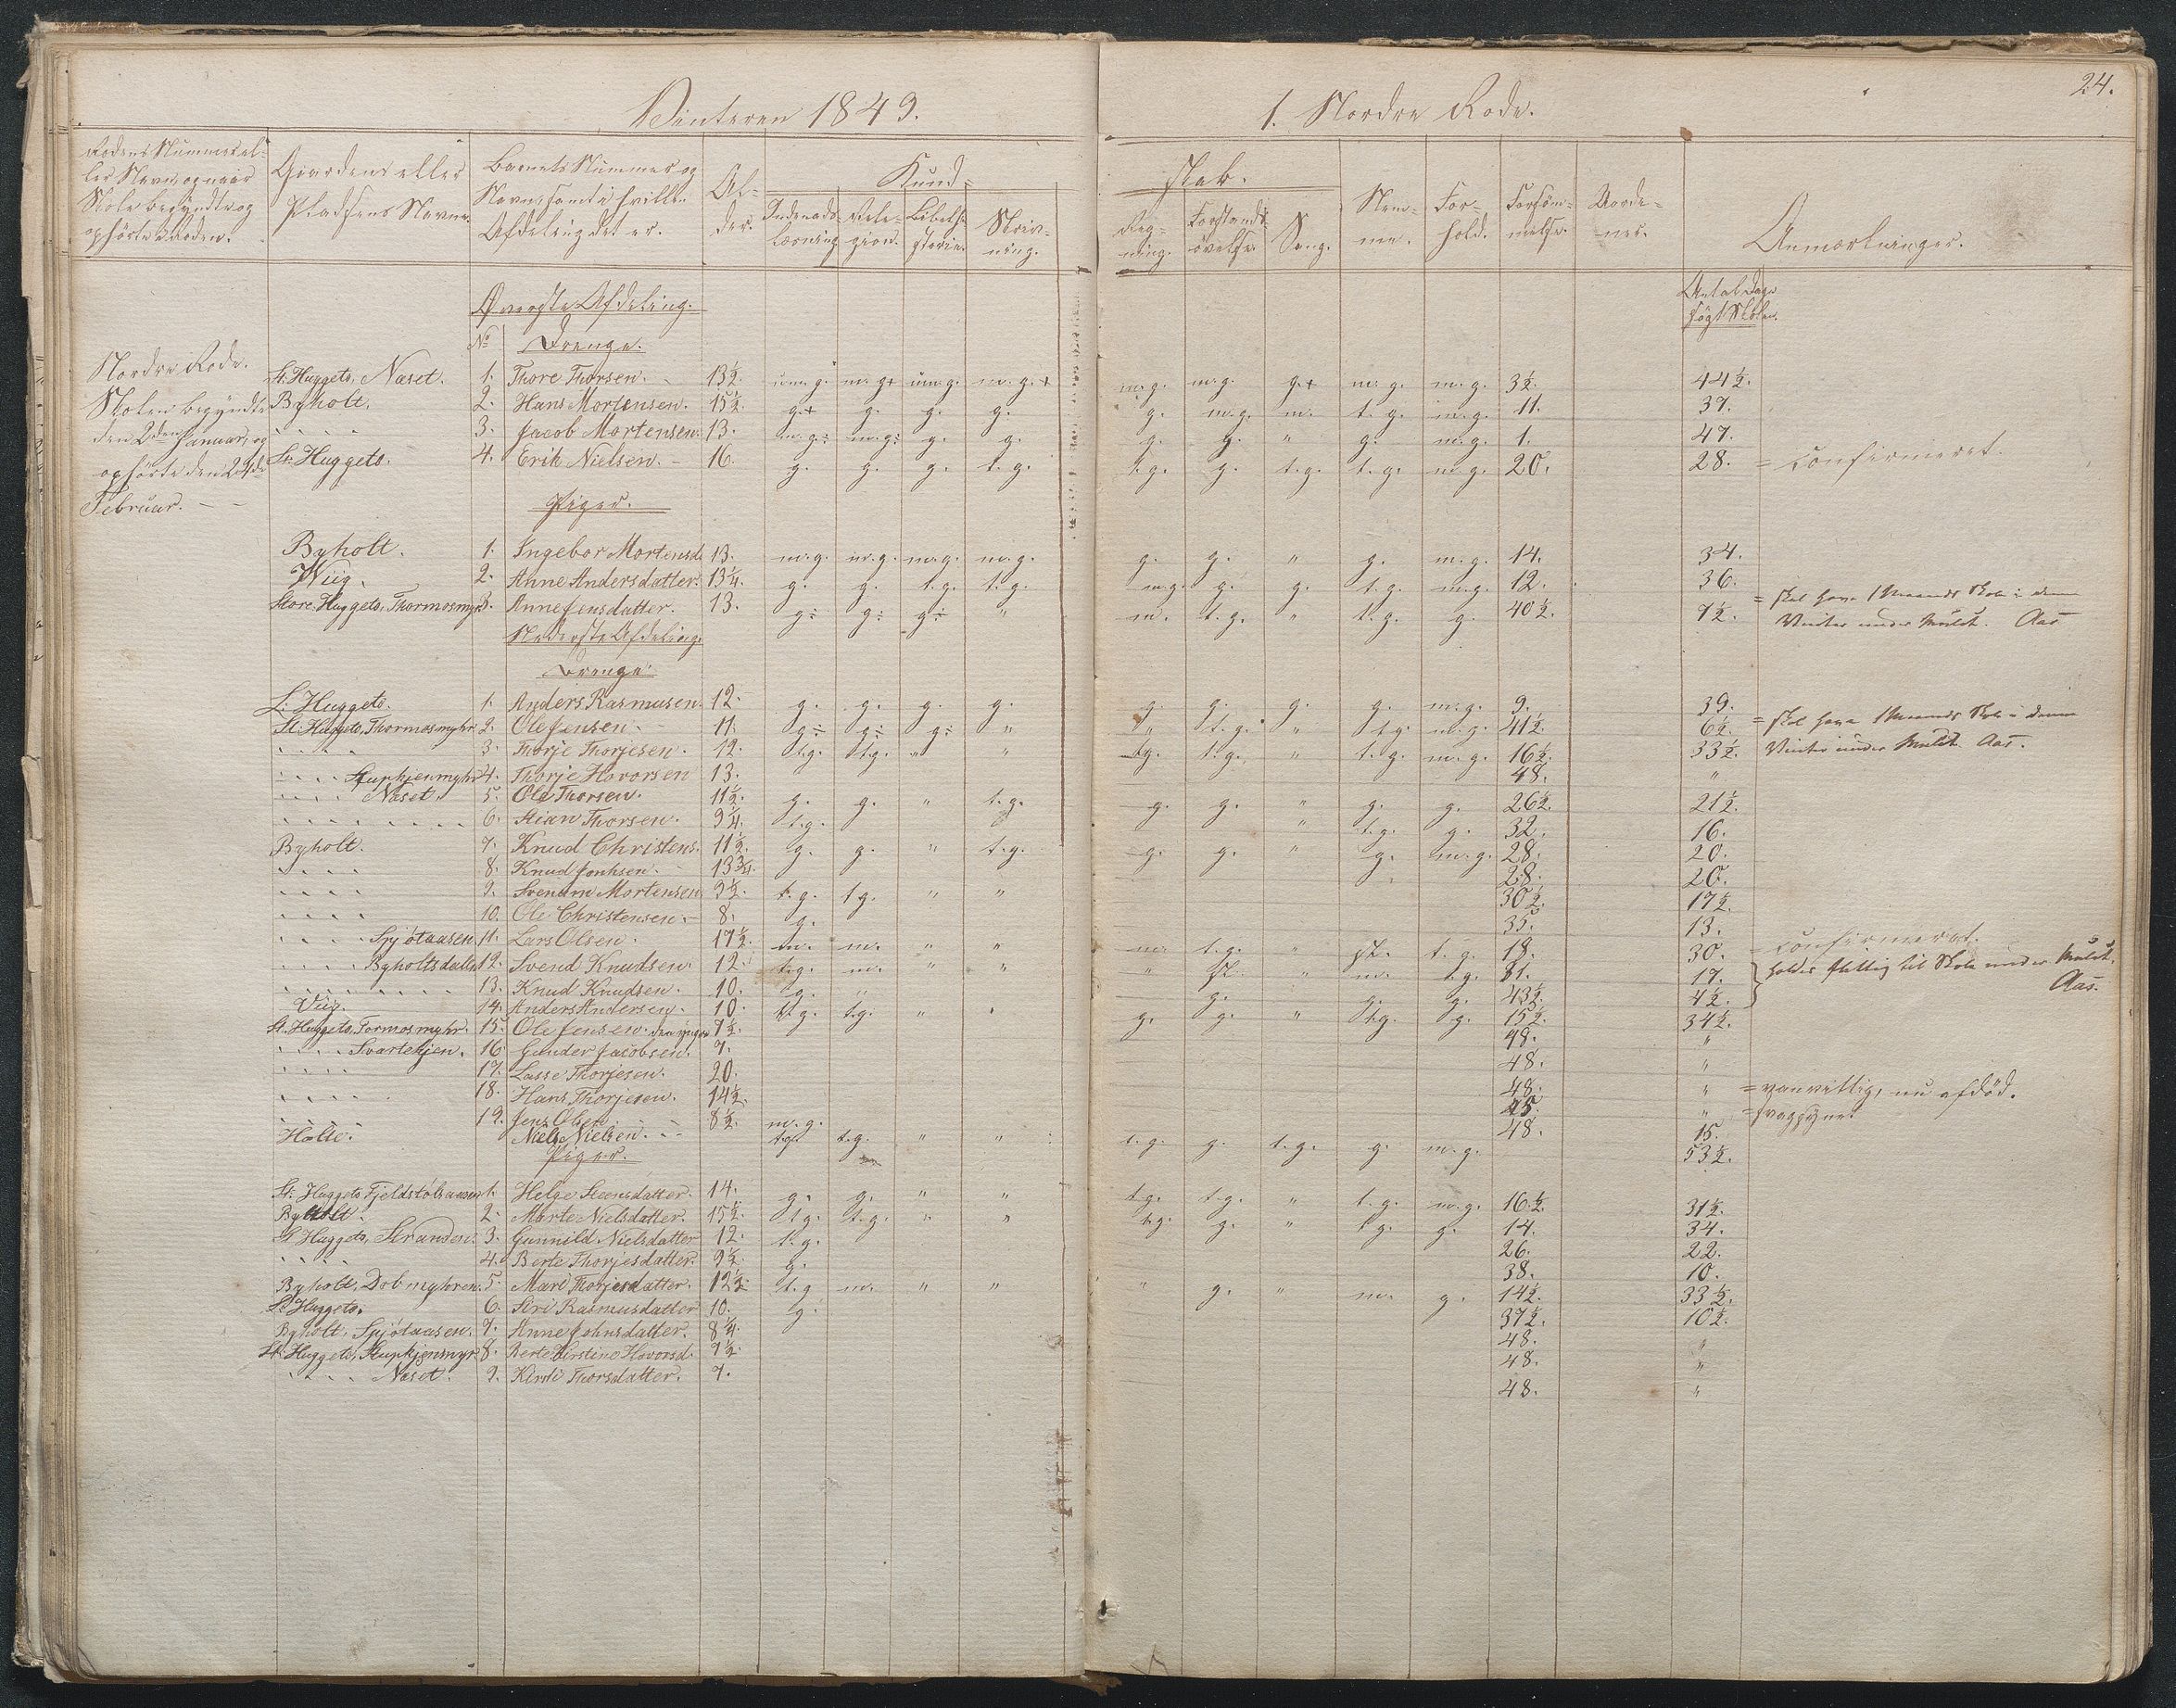 24.
Vinteren 1849.
1. Nordre Rode.
Rodens Nummer el-
ler Navn, og naar
Skolen begyndte og
ophörte i Roden.
Gaardens eller
Pladsens Navne.
Barnets Nummer og
Navn, samt i hvilken
Afdeling det er.
Al-
der.
Kund-
skab.
Indenads-
læsning
Rele-
gion.
Bibelhi-
storie.
Skriv-
ning.
Reg-
ning.
Forstands-
övelse.
Sang.
Nem-
me.
For-
hold.
Forsöm-
melse.
Anmærkninger.
Antal Dage
sögt Skolen.
Øverste Afdeling.
No Drenge.
Nordre Rode.
Skolen begyndte
den 2den Januar, og
ophörte den 24de
Februar. - -
St. Huggeto, Næset. 1. Thore Thorsen. 13½. um.g. m.g+ um.g. m.g.+ m.g. m.g. g.+ m.g. m.g. 3½. 44½.
Byholt. 2. Hans Mortensen. 15½. g.+ g. g. g. g. m.g. m. t.g. m.g. 11. 37.
" 3. Jacob Mortensen. 13. m.g÷ m.g÷ g. g. g. g. " g. m.g. 1. 47.
St. Huggeto. 4. Erik Nielsen. 16. g. g. g. t.g. t.g. g. t.g. t.g. m.g. 20. 28. = confirmeret.
Piger.
Byholt. 1. Ingebor Mortensd. 13. m.g. m.g. m.g. m.g. g. g. " g. m.g. 14. 34.
Wiig. 2. Anne Andersdatter. 13¼. g. g. t.g. t.g. m.g. g. g. t.g. m.g. 12. 36.
Store Huggeto, Thormosmyr 3. Anne Jensdatter. 13. g÷ g÷ g÷ " m. t.g. " t.g. g. 40½. 7½. = skal have 1 Maaneds Skole i denne
Vinter under Mulct. Aas
Nederste Afdeling.
Drenge.
L. Huggeto. 1. Anders Rasmusen. 12. g. g. g. g. g. g. g. g. m.g. 9. 39.
St. Huggeto, Thormosmyhr 2. Ole Jensen. 11. g÷ g÷ g÷ " " t.g. " t.g. m.g. 41½. 6½. = skal have 1 Maaneds Skole i denne
" 3. Thorje Thorjesen. 12. t.g. t.g. " " t.g. t.g. " t.g. m.g. 16½. 33½. Vinter under Mulct. Aas.
" Stupkjenmyhr 4. Thorje Hovorsen 13. 48. "
" Næset. 5. Ole Thorsen. 11½. g. g. " t.g. g. g. " g. g. 26½. 21½.
" 6. Stian Thorsen. 9¼. t.g. " t.g. g. 32. 16.
Byholt. 7. Knud Christens. 11½. g. g. " t.g. g. g. " g. m.g. 28. 20.
" 8. Knud Jonhsen. 13¾. 28. 20.
" 9. Svenum Mortensen 9½. t.g. t.g. " " 30½. 17½.
" 10. Ole Christensen. 8. g. 35. 13.
" Spjötaasen 11. Lars Olsen. 17½. m. m. " " m. t.g. " sl. t.g. 18. 30. = confirmeret.
" Byholtsdalen 12. Svend Knudsen. 12. t.g. m. " " " sl. " m. t.g. 31. 17. } holdes flittig til Skole under Mulct.
" 13. Knud Knudsen. 10. g. " g. g. g. 43½. 4½. Aas.
Viig. 14. Anders Andersen. 10. t.g. t.g. " " g. g. " t.g. g. 15½. 34½.
St. Huggeto, Tormosmyhr. 15. Ole Jensen. den yngre 7½. 48. "
" Svartekjen. 16. Gunder Jacobsen. 7. 48. "
" 17. Lasse Thorjesen. 20. 48. " = vanvittig, nu afdöd.
" 18. Hans Thorjesen. 14½. 48. " = svagsynet
" 19. Jens Olsen. 8½. m.g. 48. 15.
Holte. Niels Nielsen. t.g. t.g. " " t.g. g. t.g. g. m.g. 53½.
Piger.
St. Huggeto Fjeldstölsaasen 1. Helge Steensdatter. 14. g. g. " " t.g. t.g. " t.g. m.g. 16½. 31½.
Byholt. 2. Marte Nielsdatter. 15½. t.g. t.g. " " t.g. g. " t.g. g. 14. 34.
St Huggeto, Stranden. 3. Gunnild Nielsdatter 12. t.g. 26. 22.
" 4. Berte Thorjesdatter. 9½. g. 38. 10.
Byholt, Dobmyhren. 5. Mari Thorjesdatter. 12½. t.g. m. " " " g. " m. g. 14½. 33½.
L. Huggeto. 6. Siri Rasmusdatter 10. g. 37½. 10½.
Byholt, Spjötaasen. 7. Anne Johnsdatter. 8¼. 48. "
St. Huggeto, Stupkjenmyr 8. Berte Kirstine Hovorsd. 7½. 48. "
" Næset. 9. Kirsti Thorsdatter. 7. 48. "